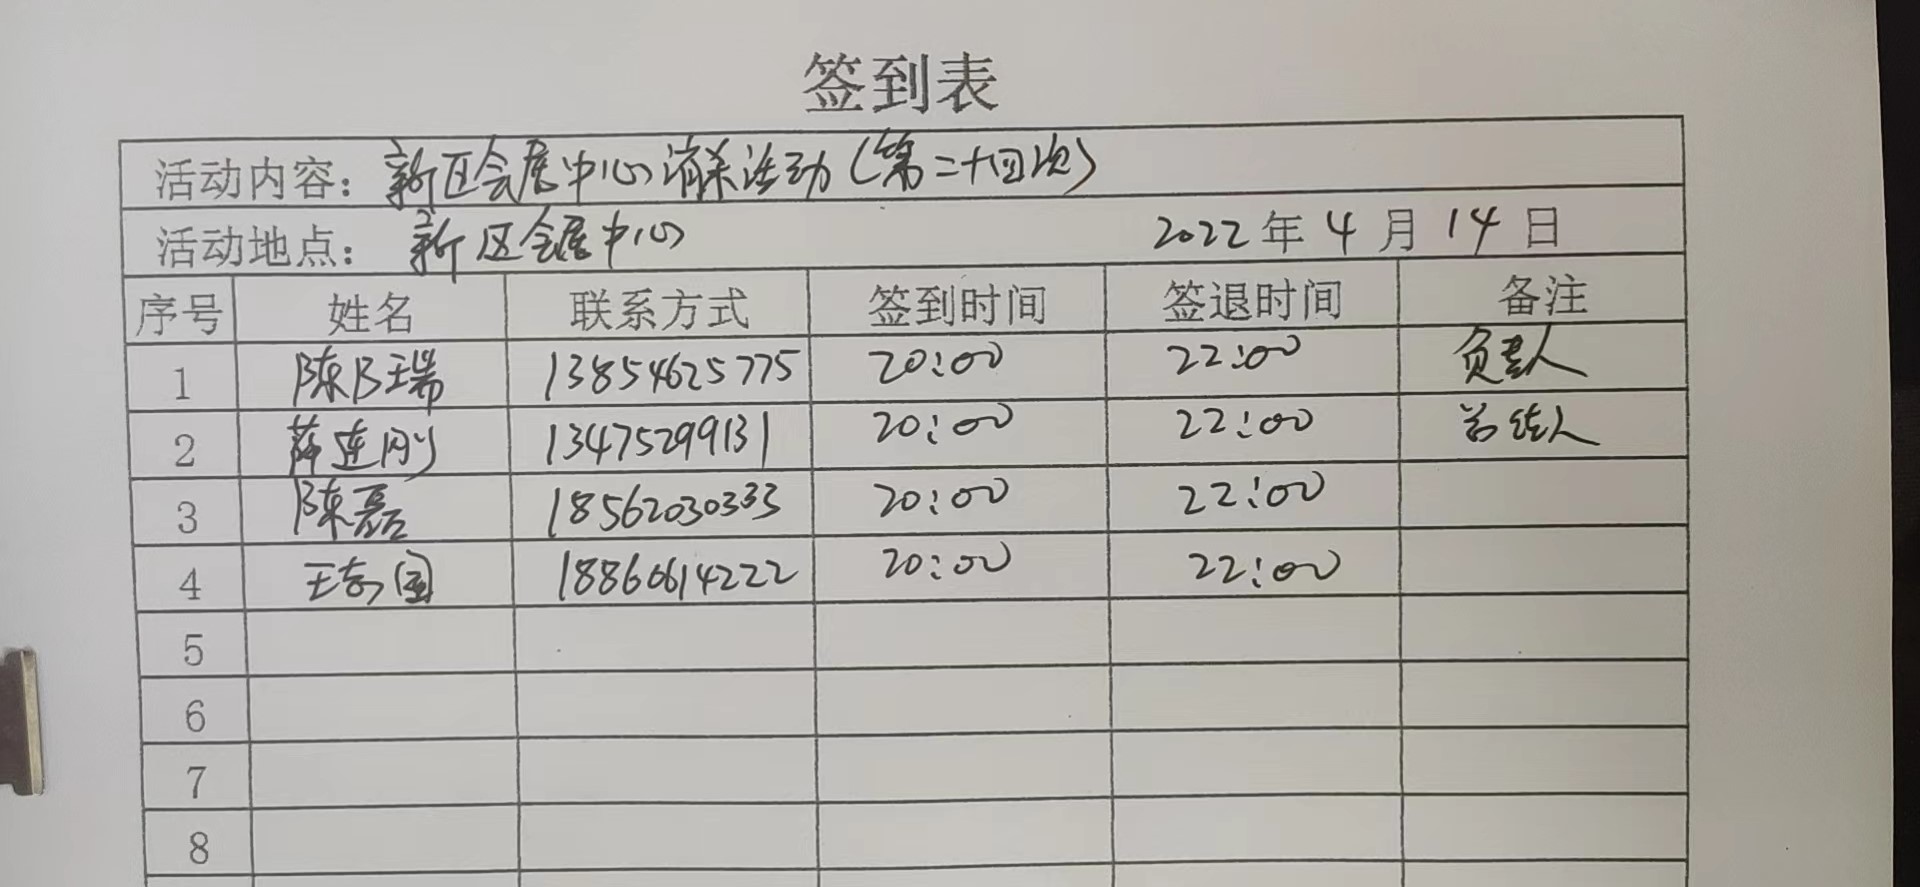 签到表
活动内容：新区会展中心消杀活动（第二十四次）
活动地点：新区会展中心 2022年4月14日
序号 姓名 联系方式 签到时间 签退时间 备注
1 13854625775 20:00 22:00 负责人
2 薛连刚 13475299131 20:00 22:00
3 陈磊 18562030333 20:00 22:00
4 18866614222 20:00 22:00
5
6
7
8